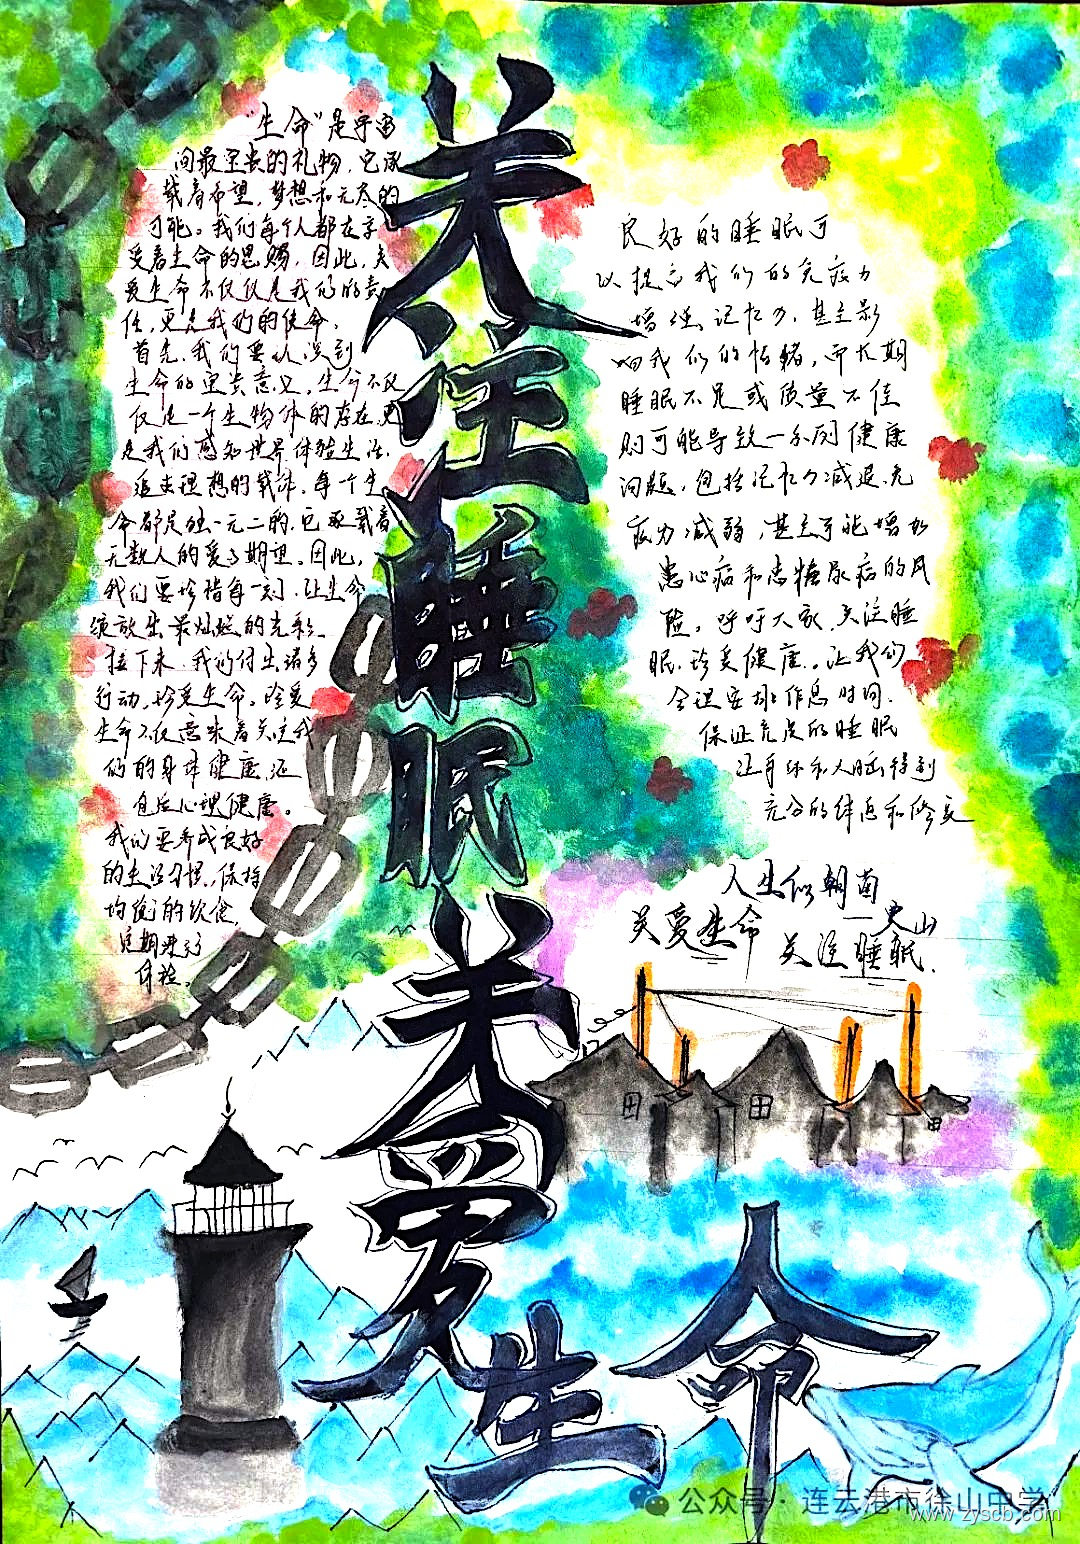 关注睡眠关爱生命
"生命"是宇宙
间最宝贵的礼物,它承
载着希望,梦想和无尽的
可能。我们每个人都在享
受着生命的恩赐,因此,关
爱生命不仅仅是我们的责
任,更是我们的使命,
首先,我们要认识到
生命的宝贵意义,生命不仅
仅是一个生物体的存在,更
是我们感知世界,体验生活,
追求理想的载体,每一个生
命都是独一无二的,它承载着
无数人的爱与期望。因此,
我们要珍惜每一刻,让生命
绽放出最灿烂的光彩。
接下来,我们付出诸多
行动,珍爱生命。珍爱
生命不仅意味着关注我
们的身体健康,还
包括心理健康。
我们要养成良好
的生活习惯,保持
均衡的饮食,
定期进行
体检。
良好的睡眠可
以提高我们的免疫力
增强记忆力,甚至影
响我们的情绪,而长期
睡眠不足或质量不佳
则可能导致一系列健康
问题,包括记忆力减退,免
疫力减弱,甚至可能增加
患心病和患糖尿病的风
险,呼吁大家,关注睡
眠,珍爱健康。让我们
合理安排作息时间,
保证充足的睡眠
让身体和大脑得到
充分的休息和修复
人生似朝菌
—史山
关爱生命 关注睡眠.
公众号·连云港市徐山中学
www.zyscb.com